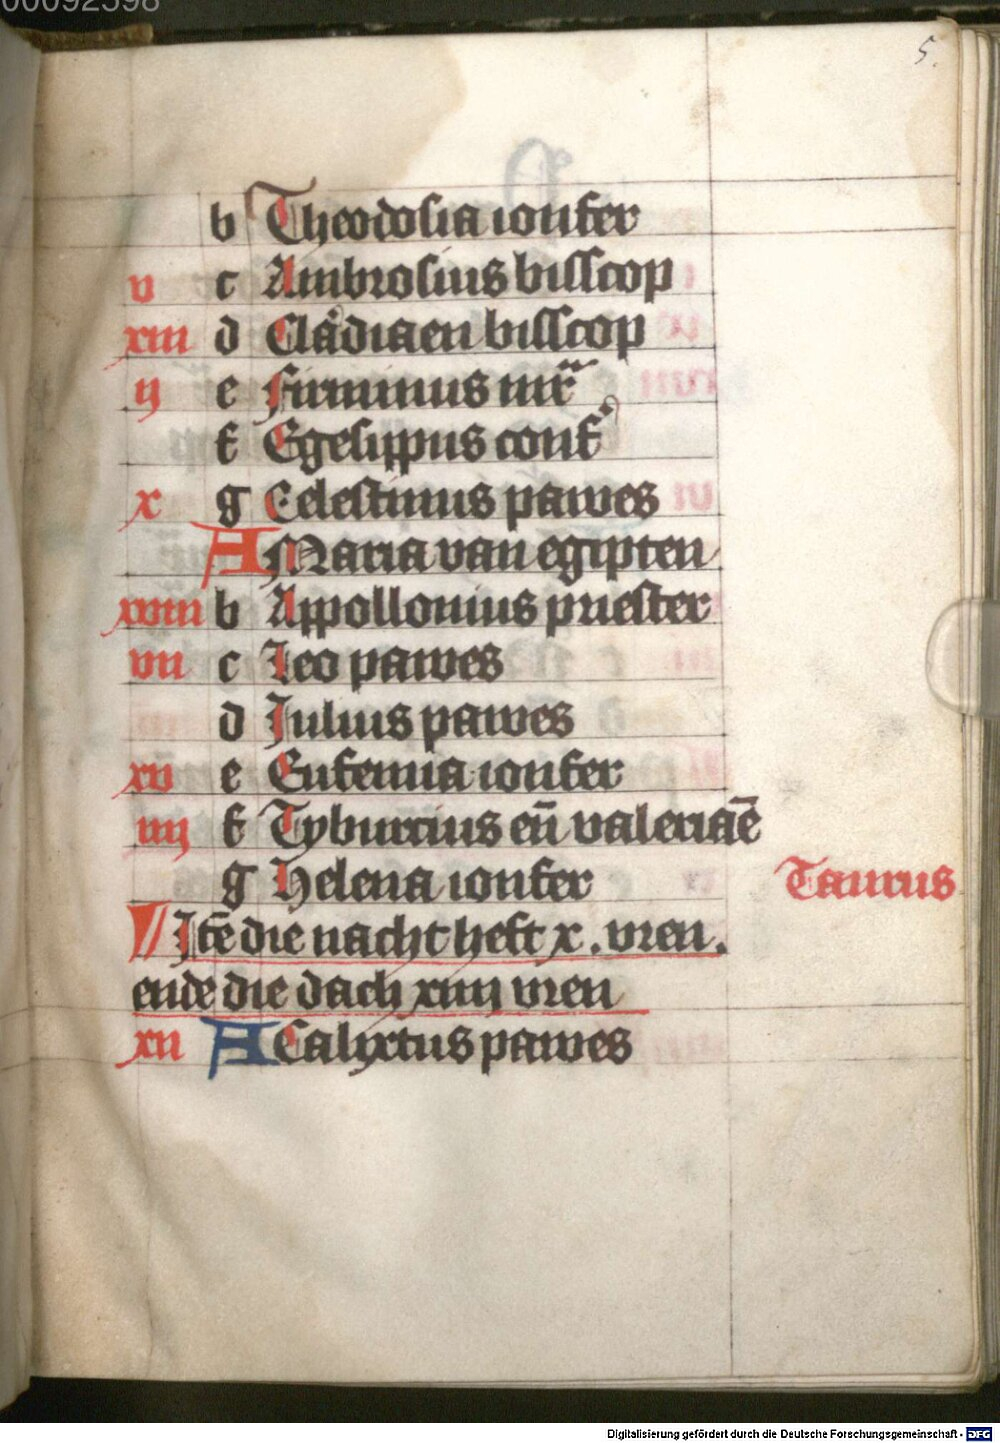 00092598
5.
b Theodosia ionfer
v c Ambrosius bisscop
xiii d Claudiaen bisscop
ij e Firminus mr̃
f Egesippus conf᷒
x g Celestinus pawes
A Maria van egipten
xviii b Appollonius priester
vii c Leo pawes
d Julius pawes
xv e Eufemia ionfer
iiij f Tyburcius eñ valeriaẽ
g Helena ionfer
Taurus
Itẽ die nacht heft x . vren.
ende die dach xiiij vren
xii A Calixtus pawes
Digitalisierung gefördert durch die Deutsche Forschungsgemeinschaft - DFG